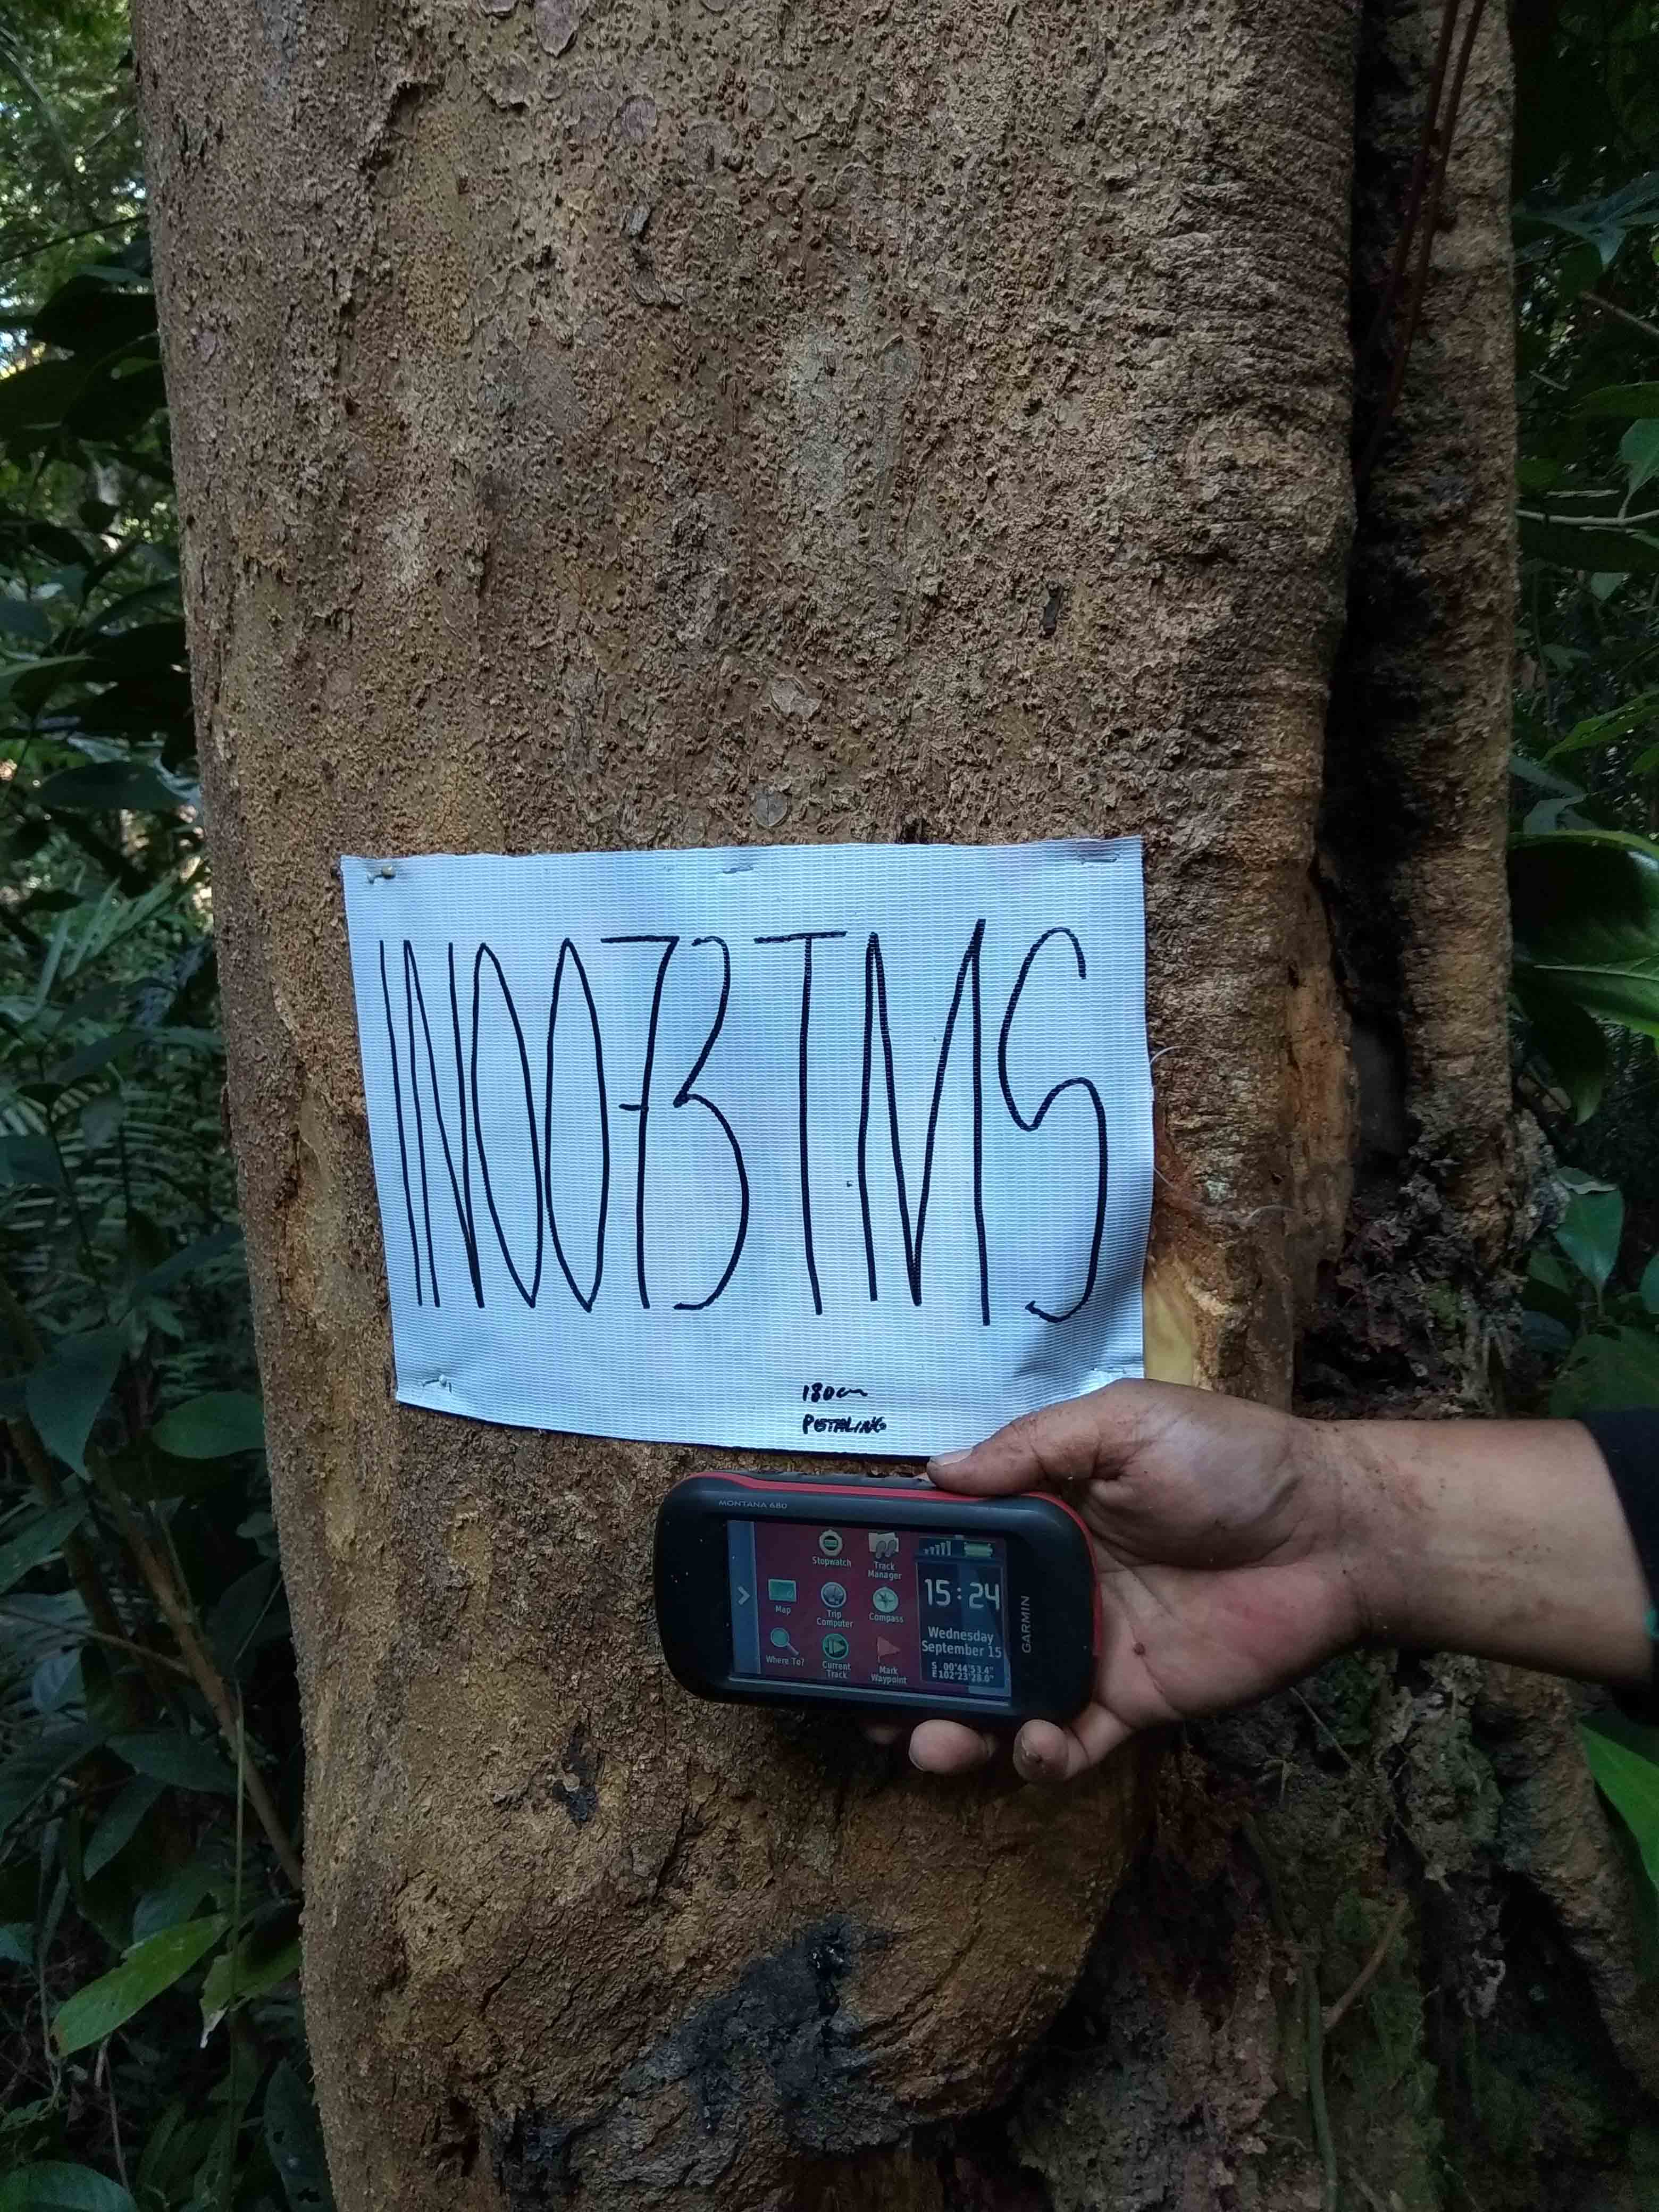 IN0073TMS
180cm
PETALING
MONTANA 680
Stopwatch
Track Manager
Map
Trip Computer
Compass
Where To?
Current Track
Mark Waypoint
15:24
Wednesday
September 15
S 00°44'53.4"
E102°23'28.6"
GARMIN